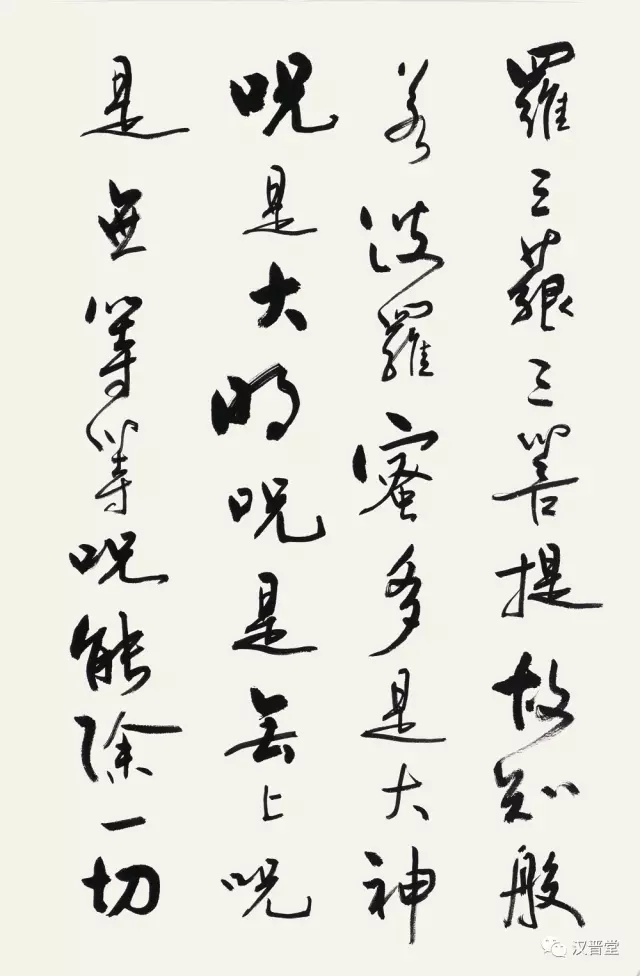 羅三藐三菩提故知般
若波羅蜜多是大神
咒是大明咒是無上咒
是無等等咒能除一切
汉晋堂